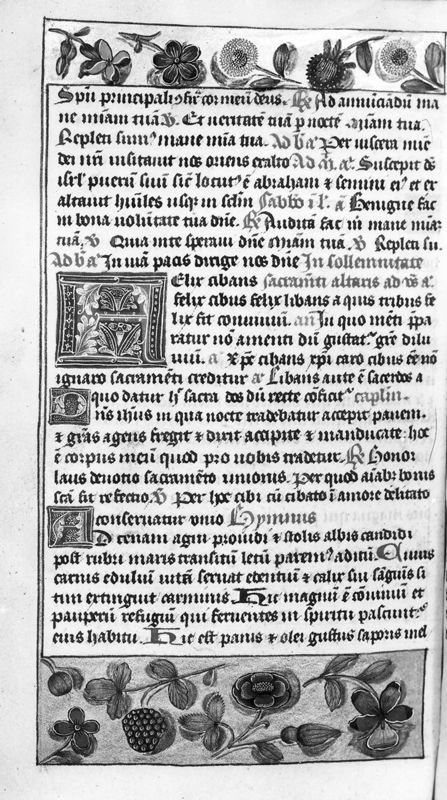 Spū principali ꝯfir cor meū deus. R Ad annūciādū ma
ne miām tuā V. Et veritatē tuā p noctē miam tua.
Repleti sum⁹ mane mīa tua. Ad b̄ a Per viscera mie
dei nr̄i visitavit nos oriens exalto Ad m̄. a. Suscepit ds̄
isrl̄ puerū suū sic̄ locut⁹ ē abraham & semini ei⁹ et ex
altavit hūiles usqȝ in sclm̄ Sabb̄o i l. a Benigne fac
in bona volūtate tua dn̄e. R Auditā fac m̄ mane mīaꝫ
tuā. V Quia in te speravi dn̄e miam tuā. V Repleti su.
Ad b̄ a In viā pacis dirige nos dn̄e In sollemnitate
Felix cibans sacramēti altaris ad
felix cibus felix libans a quis tribus fe
lix fit convivium. añ In quo mēti ꝑpa
ratur nō a menti dū gustat⁹ gr̄e dilu
vium. a Xp̄c cibans xp̄i caro cibus ē nō
ignaro sacramēti creditur a Libans ante ē sacerdos a
quo datur h⁹ sacra dos dū recte cōficit⁹ capl̄m.
Dn̄s ih̄us in qua nocte tradebatur accepit panem.
& gr̄as agens fregit & dixit accipite & manducate hoc
ē corpus meū quod pro vobis tradetur. R Honor
laus devotio sacramēto unionis. Per quod
sc̄a fit refectio. V Per hoc cibi cū cibato ī amore delitato
conservatur unio Hymnus
Ad cenam agni providi & stolis albis candidi
post rubri maris transitū letū paremꝰ aditū. Cuius
carnis edulium vitā servat edentiū & calix sui sāguīs si
tim extinguit carminis Hic magnū ē cōvivium et
pauperū refugiū qui ferventes in spiritu pascunt⁹
eius habitu. Hic est panis & olei gustus saporis mel